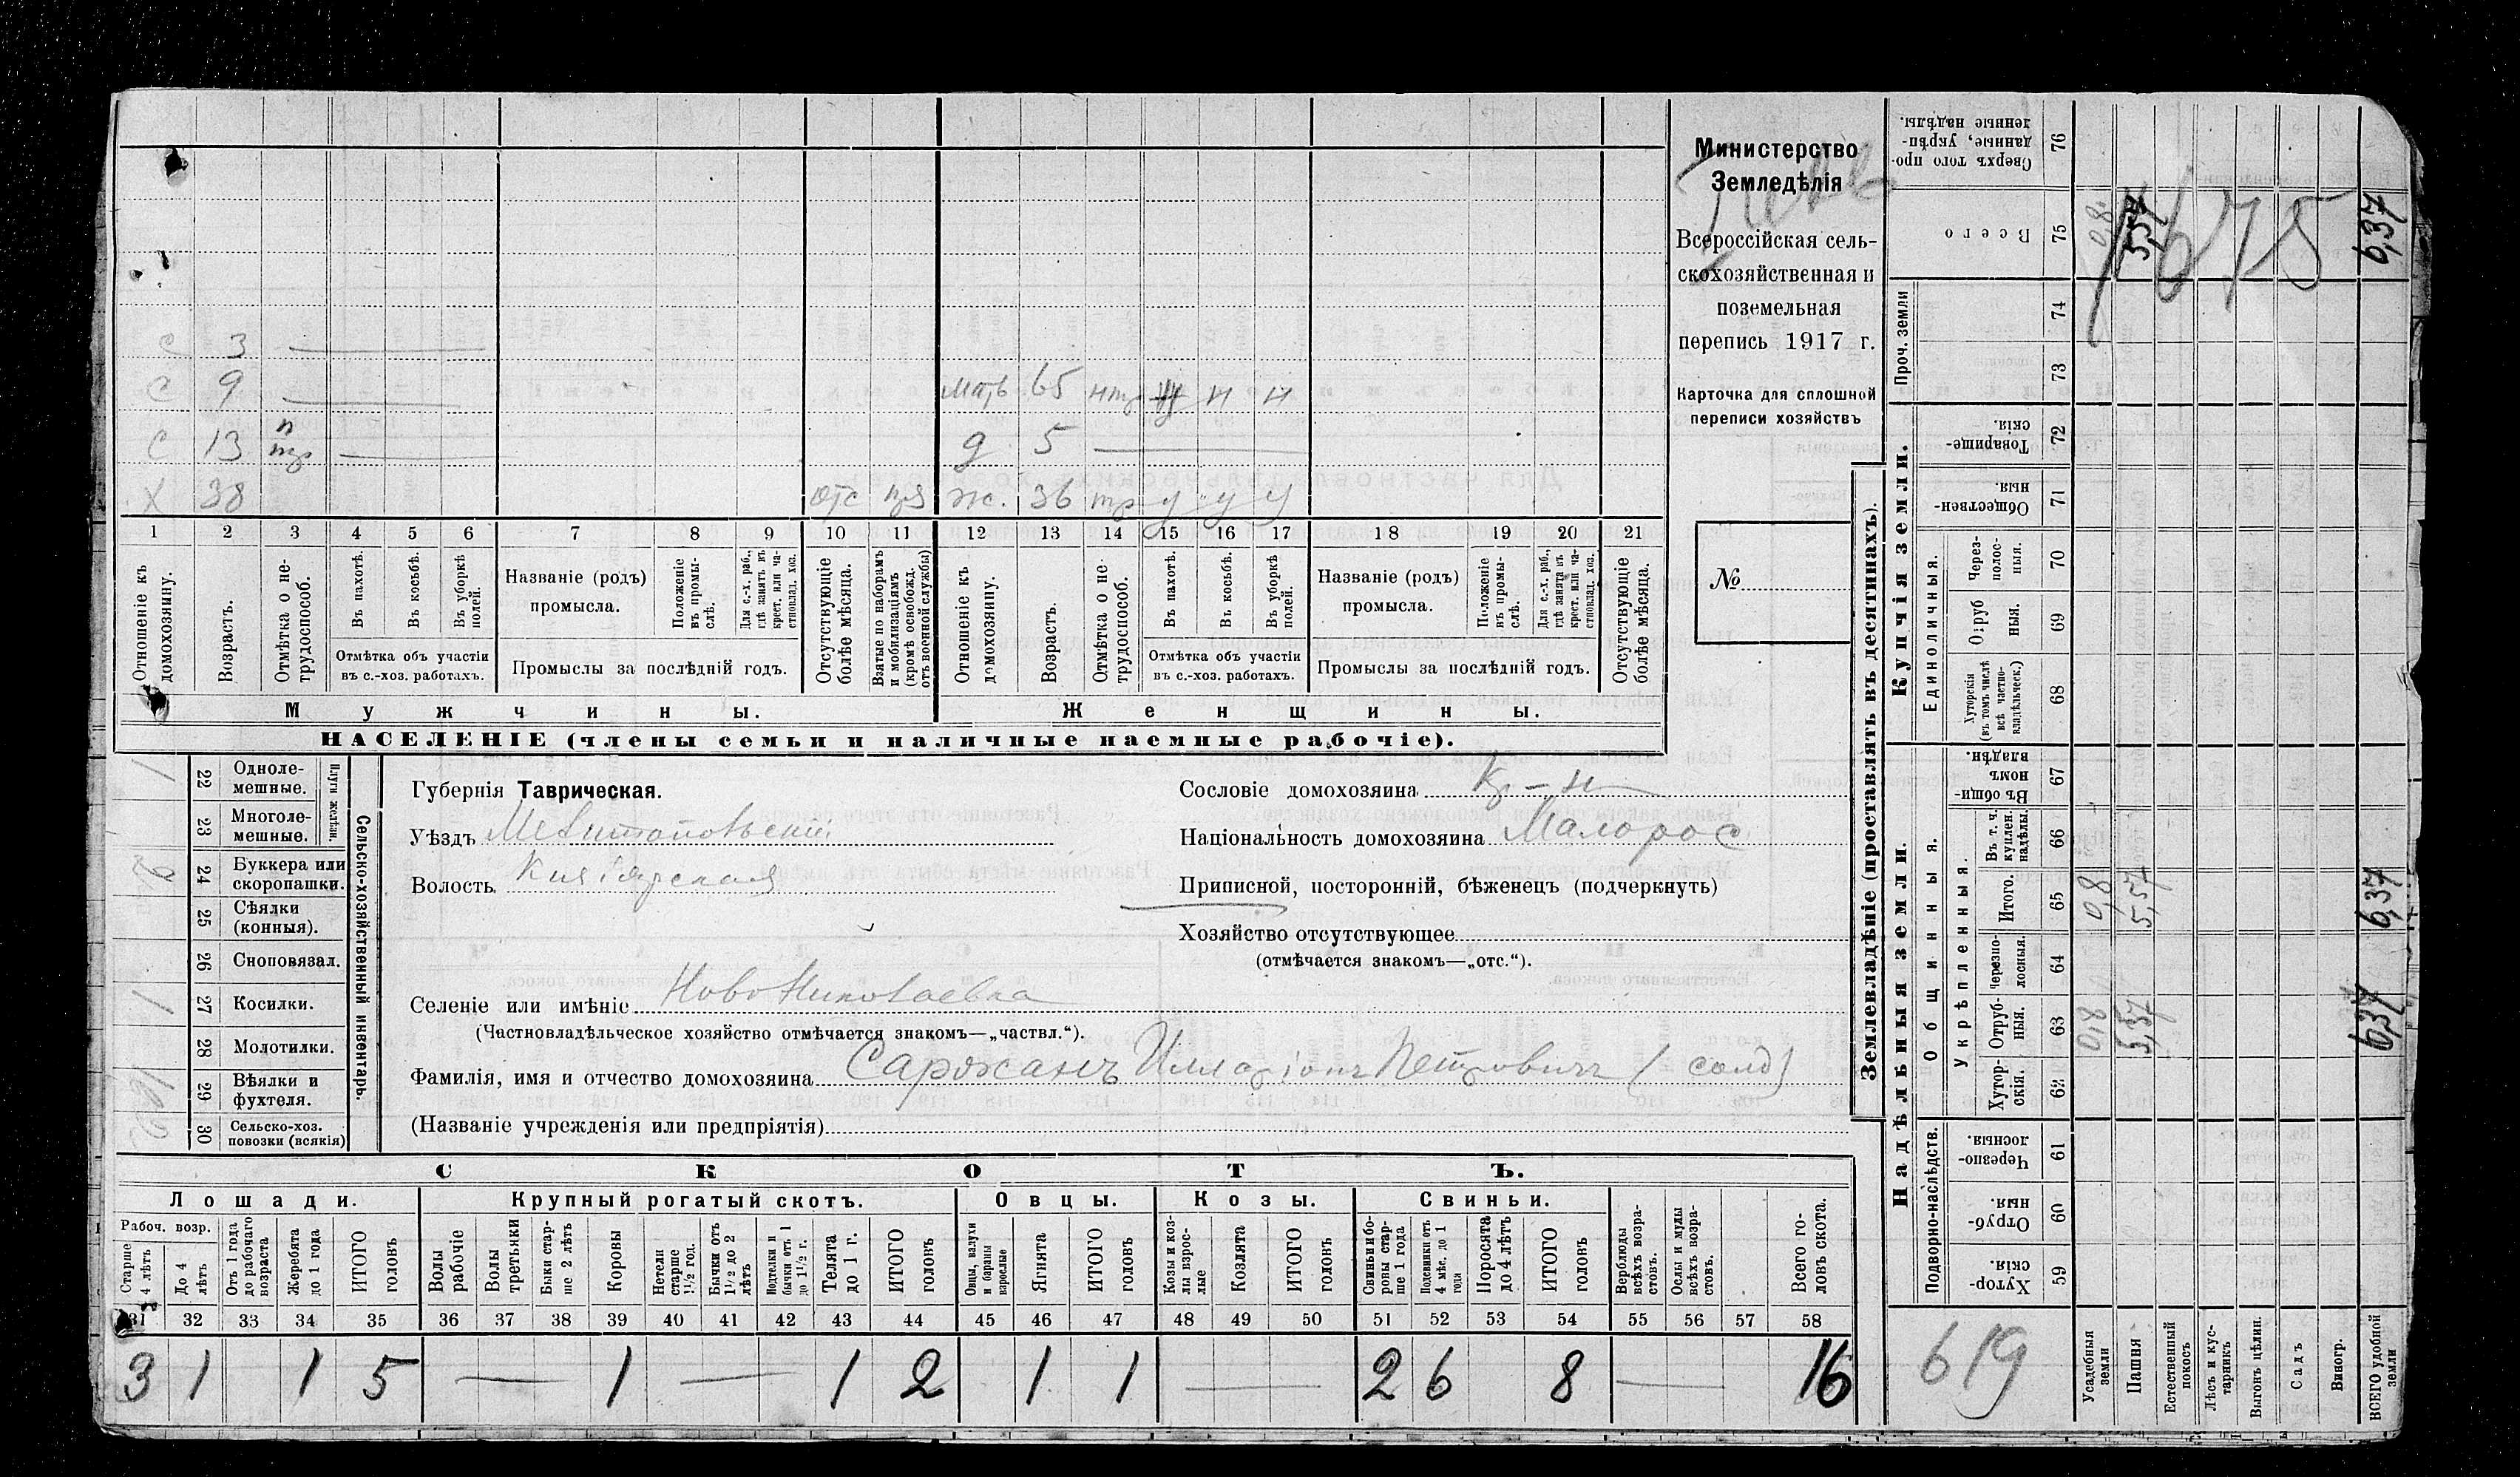 С 3
С 9
С 13 н тр
Х 38 отс
мать 65 нтр н н
д 5
ж. 36 тр у у у
1 2 3 4 5 6 7 8 9 10 11 12 13 14 15 16 17 18 19 20 21
Отношеніе къ домохозяину.
Возрастъ.
Отмѣтка о нетрудоспособ.
Въ пахотѣ.
Въ косьбѣ.
Въ уборкѣ полей.
Отмѣтка объ участіи въ с.-хоз. работахъ.
Названіе (родъ) промысла.
Положеніе въ промыслѣ.
Для с.-х. раб., гдѣ занятъ въ крест. или частновлад. хоз.
Промыслы за послѣдній годъ.
Отсутствующіе болѣе мѣсяца.
Взятые по наборамъ и мобилизаціямъ (кромѣ освобожд. отъ военной службы)
Отношеніе къ домохозяину.
Возрастъ.
Отмѣтка о нетрудоспособ.
Въ пахотѣ.
Въ косьбѣ.
Въ уборкѣ полей.
Отмѣтка объ участіи въ с.-хоз. работахъ.
Названіе (родъ) промысла.
Положеніе въ промыслѣ.
Для с.-х. раб., гдѣ занята въ крест. или частновлад. хоз.
Промыслы за послѣдній годъ.
Отсутствующіе болѣе мѣсяца.
Мужчины.
Женщины.
НАСЕЛЕНІЕ (члены семьи и наличные наемные рабочіе).
Министерство
Земледѣлія
Всероссійская сель-
скохозяйственная и
поземельная
перепись 1917 г.
Карточка для сплошной
переписи хозяйствъ
№
Сельско-хозяйственный инвентарь.
Плуги желѣзн.
22 Одноле-мешные. 1
23 Многоле-мешные.
24 Буккера или скоропашки. 2
25 Сѣялки (конныя).
26 Сноповязал.
27 Косилки. 1
28 Молотилки.
29 Вѣялки и фухтеля.
30 Сельско-хоз. повозки (всякія)
Губернія Таврическая.
Уѣздъ Мелитопольскій
Волость
Селеніе или имѣніе Ново Николаевка
(Частновладѣльческое хозяйство отмѣчается знакомъ—„частвл.“).
Фамилія, имя и отчество домохозяина Саржанъ Илларіонъ Петровичъ (солд)
(Названіе учрежденія или предпріятія)
Сословіе домохозяина кр-н
Національность домохозяина Малорос
Приписной, посторонній, бѣженецъ (подчеркнуть)
Хозяйство отсутствующее
(отмѣчается знакомъ—„отс.“).
СКОТЪ.
Лошади.
Крупный рогатый скотъ.
Овцы.
Козы.
Свиньи.
Рабоч. возр.
Старше 4 лѣтъ
До 4 лѣтъ
Отъ 1 года до рабочаго возраста
Жеребята до 1 года
ИТОГО головъ
Волы рабочіе
Волы третьяки
Быки старше 2 лѣтъ
Коровы
Нетели старше 1½ год.
Бычки отъ 1½ до 2 лѣтъ
Подтелки и бычки отъ 1 до 1½ г.
Телята до 1 г.
ИТОГО головъ
Овцы, валухи и бараны взрослые
Ягнята
ИТОГО головъ
Козы и козлы взрослые
Козлята
ИТОГО головъ
Свиньи и боровы старше 1 года
Подсвинки отъ 4 мѣс. до 1 года
Поросята до 4 лѣтъ
ИТОГО головъ
Верблюды всѣхъ возрастовъ.
Ослы и мулы всѣхъ возрастовъ.
Всего головъ скота.
31 32 33 34 35 36 37 38 39 40 41 42 43 44 45 46 47 48 49 50 51 52 53 54 55 56 57 58
3 1 1 5 — 1 — 1 2 1 1 — 2 6 8 — 16
Землевладѣніе (проставлять въ десятинахъ).
Надѣльныя земли.
Купчія земли.
Проч. земли
Сверхъ того проданные, укрѣпленные надѣлы. 76
Всего 75 0,8 5,57 6,37
675
74
73
Товарищескія. 72
Общественныя. 71
Единоличныя.
Черезполосныя. 70
Отрубныя. 69
Хуторскія (въ томъ числѣ всѣ частновладѣльческ.) 68
Общинныя.
Въ общинномъ владѣн. 67
Укрѣпленныя.
Въ т. ч. куплен. надѣлы. 66
Итого. 65 0,8 5,57 6,37
Черезполосныя. 64
Отрубныя. 63 0,8 5,57 6,37
Хуторскія. 62
Подворно-наслѣдств.
Черезполосныя. 61
Отрубныя. 60
Хуторскія. 59
619
Усадебныя земли
Пашня
Естественный покосъ
Лѣсъ и кустарникъ
Выгонъ цѣлин.
Садъ
Виногр.
ВСЕГО удобной земли